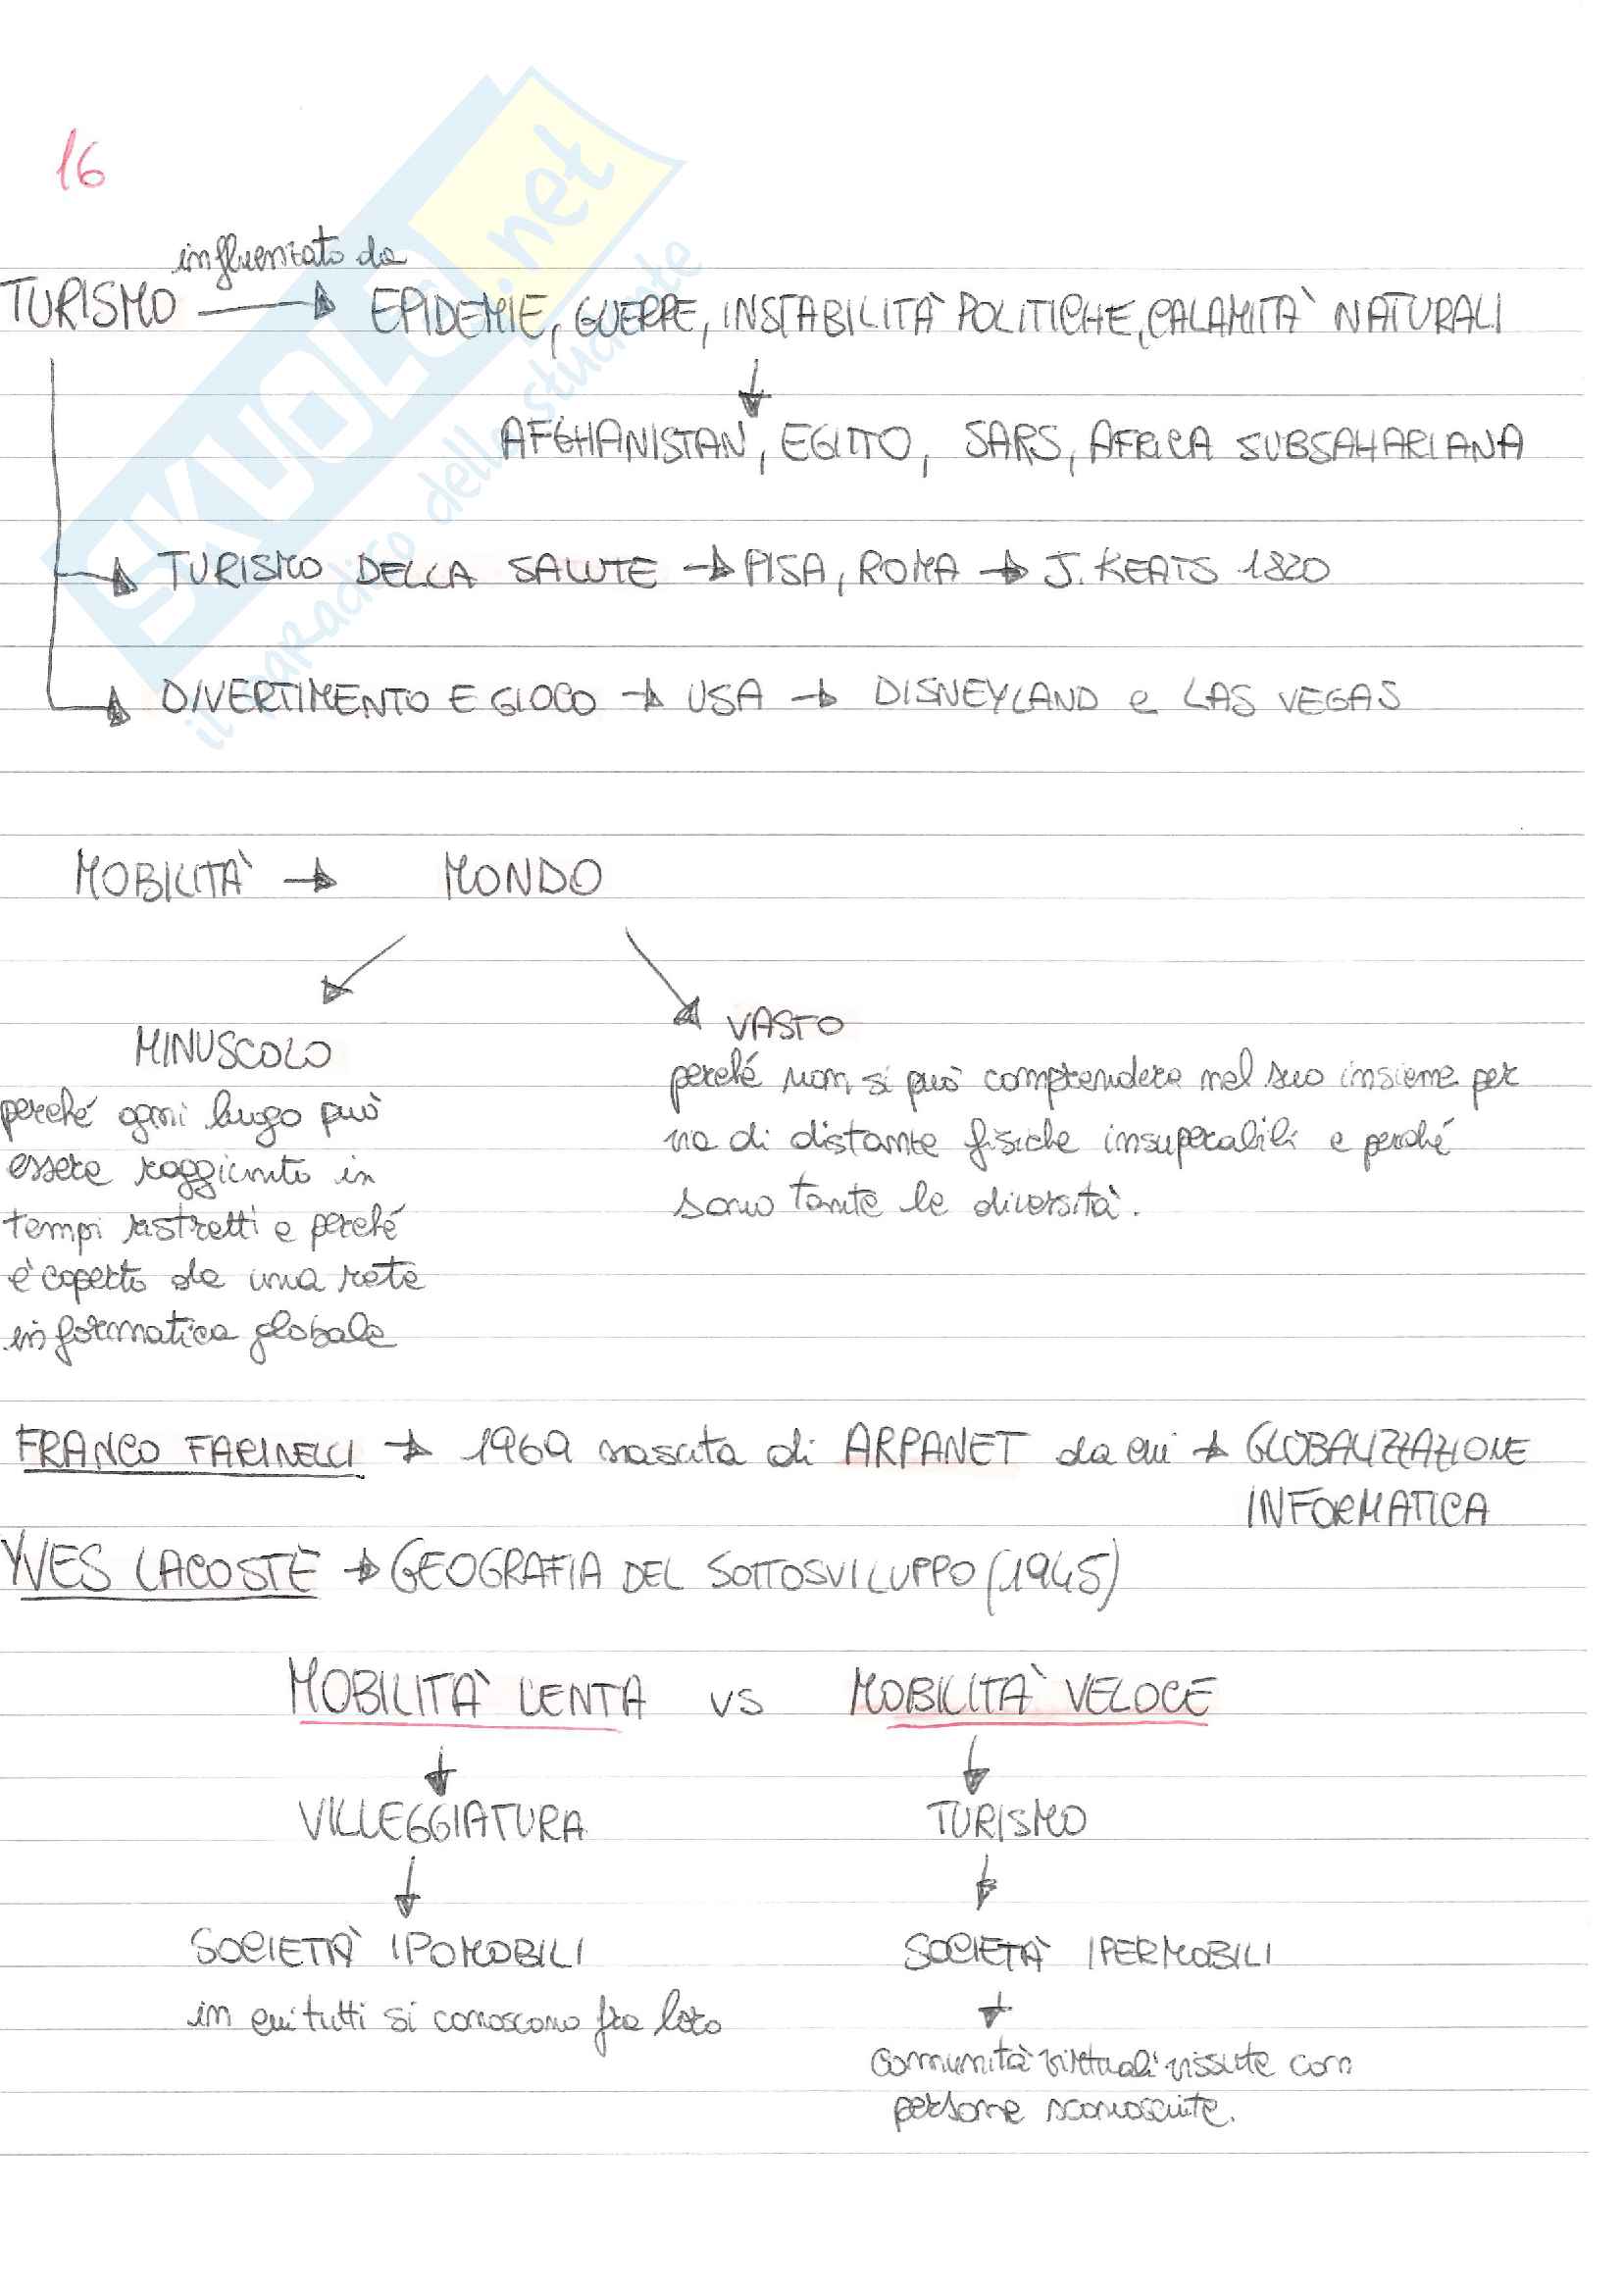 16
influenzato da
TURISMO → EPIDEMIE, GUERRE, INSTABILITÀ POLITICHE, CALAMITÀ NATURALI
AFGHANISTAN, EGITTO, SARS, AFRICA SUBSAHARIANA
→ TURISMO DELLA SALUTE → PISA, ROMA → J. KEATS 1820
→ DIVERTIMENTO E GIOCO → USA → DISNEYLAND e LAS VEGAS
MOBILITÀ → MONDO
MINUSCOLO
perché ogni luogo può
essere raggiunto in
tempi ristretti e perché
è coperto da una rete
informatica globale
VASTO
perché non si può comprendere nel suo insieme per
via di distanze fisiche insuperabili e perché
sono tante le diversità.
FRANCO FARINELLI → 1969 nascita di ARPANET da cui → GLOBALIZZAZIONE
INFORMATICA
YVES LACOSTE → GEOGRAFIA DEL SOTTOSVILUPPO (1945)
MOBILITÀ LENTA vs MOBILITÀ VELOCE
VILLEGGIATURA TURISMO
SOCIETÀ IPOMOBILI SOCIETÀ IPERMOBILI
in cui tutti si conoscono fra loro
comunità virtuali vissute con
persone sconosciute.
SKUOLA.net
il paradiso dello studente